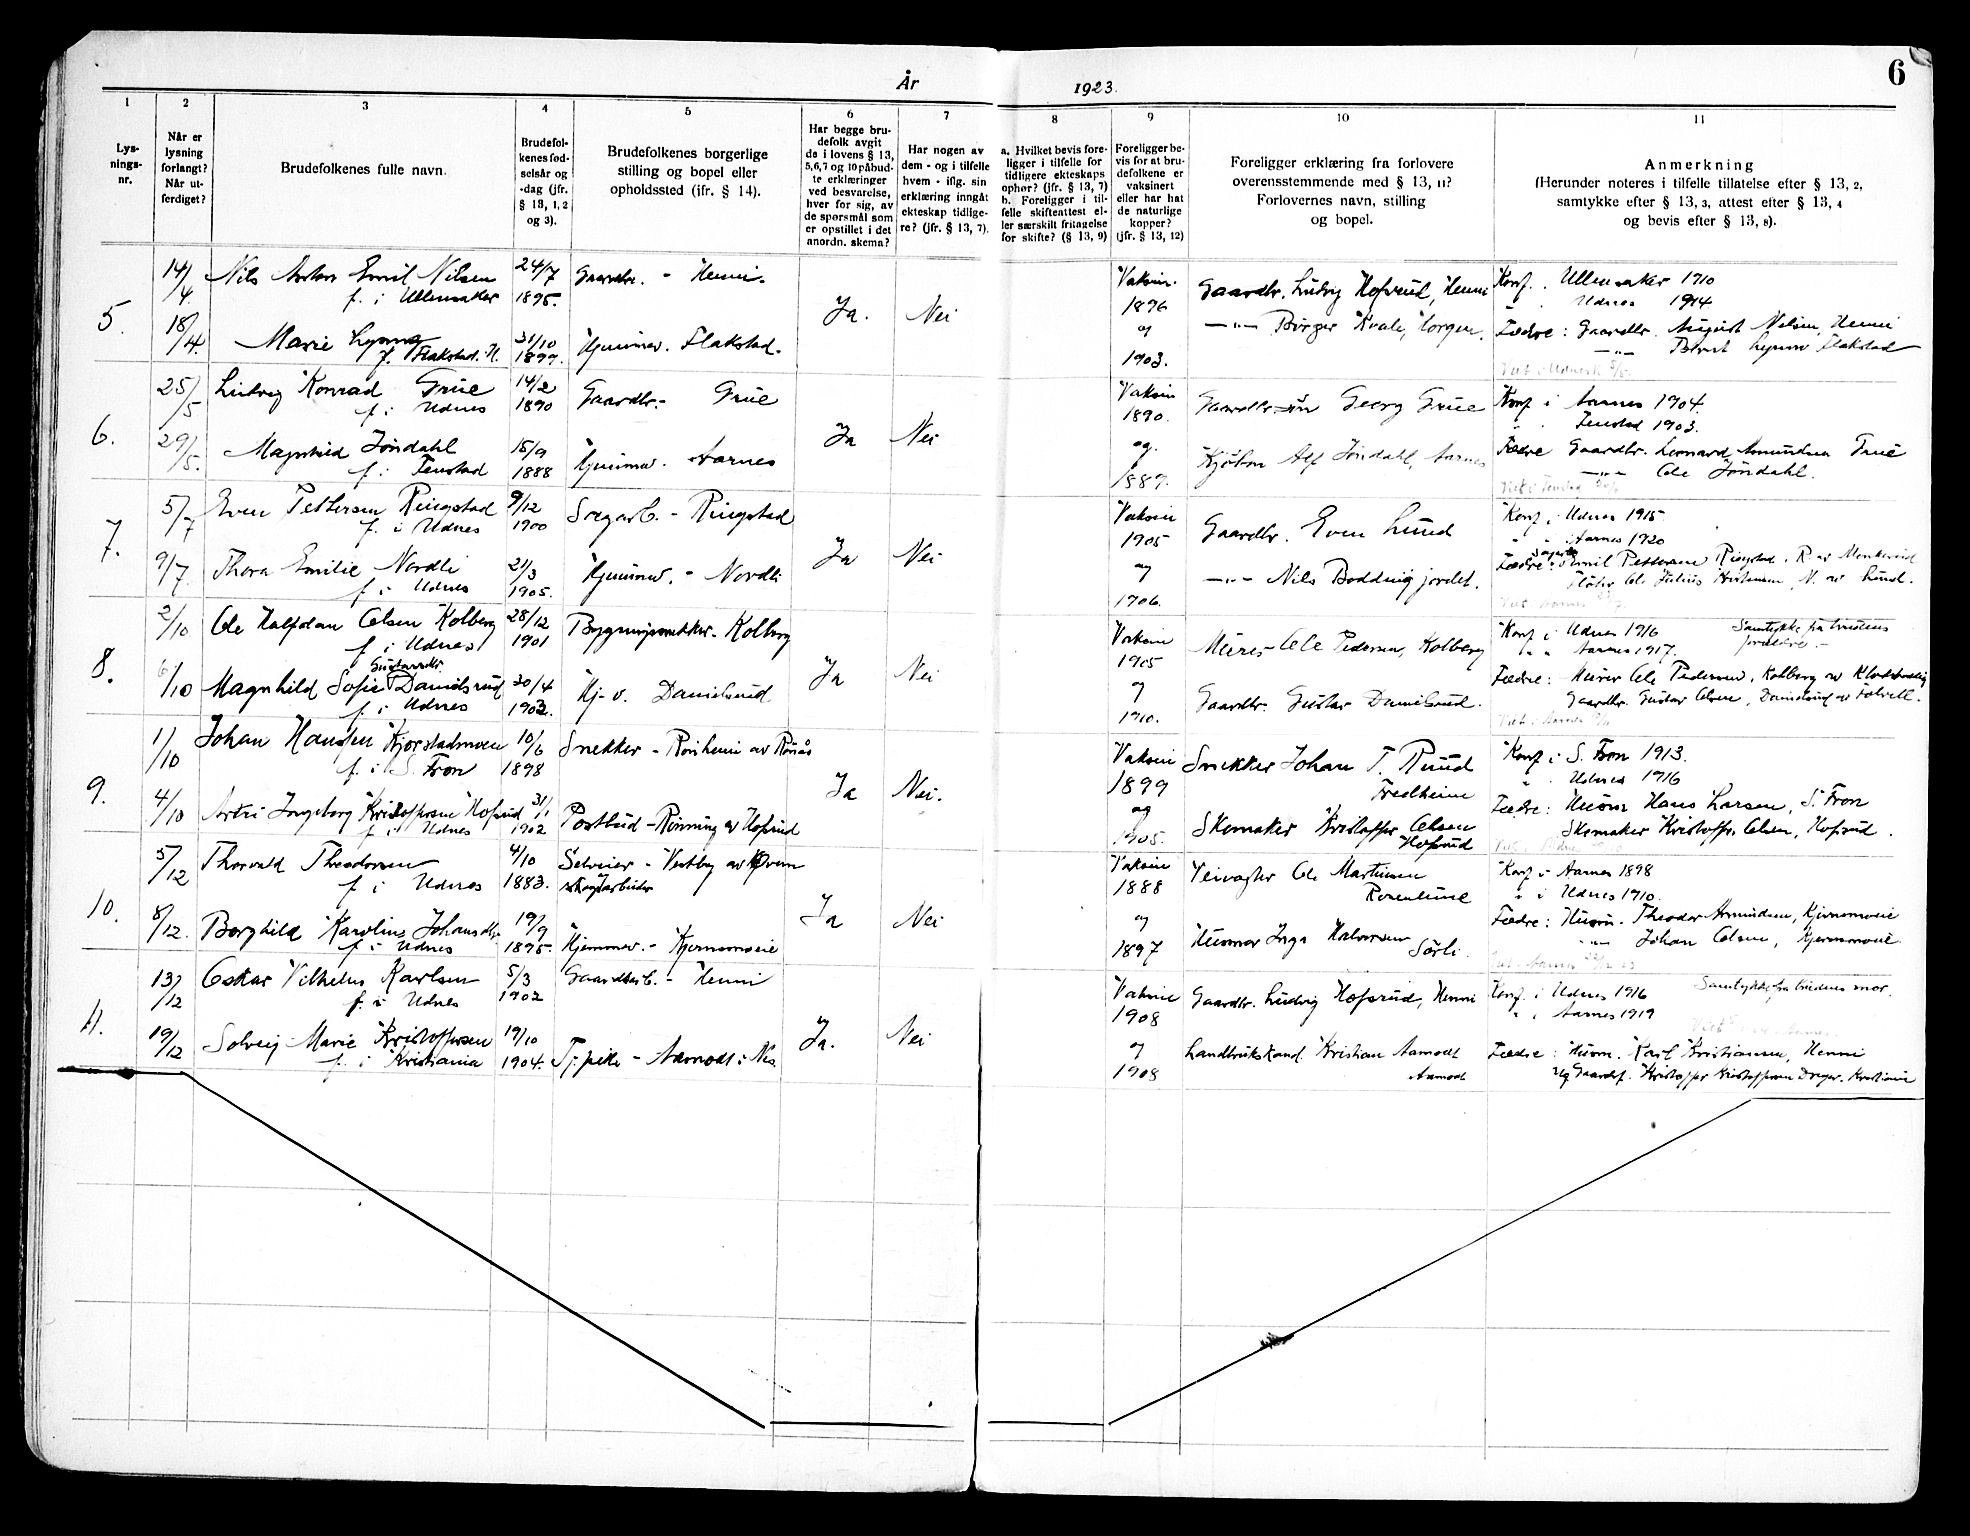 År 1923.
6
1 2 3 4 5 6 7 8 9 10 11
Lys-
nings-
nr.
Når er
lysning
forlangt?
Når ut-
ferdiget?
Brudefolkenes fulle navn.
Brudefol-
kenes fød-
selsår og
-dag (jfr.
§ 13, 1, 2
og 3).
Brudefolkenes borgerlige
stilling og bopel eller
opholdssted (ifr. § 14).
Har begge bru-
defolk avgit
de i lovens § 13,
5,6,7 og 10 påbud-
te erklæringer
ved besvarelse,
hver for sig, av
de spørsmål som
er opstillet i det
anordn. skema?
Har nogen av
dem - og i tilfelle
hvem - iflg. sin
erklæring inngåt
ekteskap tidlige-
re? (jfr. § 13, 7).
a. Hvilket bevis fore-
ligger i tilfelle for
tidligere ekteskaps
ophør? (jfr. § 13, 7)
b. Foreligger i til-
felle skifteattest el-
ler særskilt fritagelse
for skifte? (§ 13, 9)
Foreligger be-
vis for at bru-
defolkene er
vaksinert
eller har hat
de naturlige
kopper?
(jfr. § 13, 12)
Foreligger erklæring fra forlovere
overensstemmende med § 13, 11?
Forlovernes navn, stilling
og bopel.
Anmerkning
(Herunder noteres i tilfelle tillatelse efter § 13, 2,
samtykke efter § 13, 3, attest efter § 13, 4
og bevis efter § 13, 8).
5.
14/4
18/4.
Nils Anton Emil Nilsen
f. i Ullensaker
Marie Lyang
f. Flakstad. N.
24/7
1895.
31/10
1899.
Gaardbr. - Henni.
Hjemmev. Flakstad.
Ja.
Nei
Vaksin.
1896
og
1903.
Gaardbr. Ludvig Hofsrud, Henni
—"— Birger Kvale, Horgen.
Konf. . Ullensaker 1910
. Udnes 1914
Fædre: Gaardbr. August Nilsen, Henni
—"— Flakstad
6.
25/5
29/5.
Ludvig Konrad Grue
f. i Udnes
Magnhild Jöndahl
f. i Fenstad
14/2
1890
15/9
1888
Gaardbr. - Grue
Hjemmev. Aarnes
Ja
Nei
Vaksin
1890.
og.
1889.
Gaardbr.-sön Georg Grue
Kjöbm Alf Jöndahl, Aarnes
Konf i Aarnes 1904.
Fenstad 1903.
Fædre Gaardbr. Leonard Amundsen Grue
—"— Ole Jöndahl.
7.
5/7
9/7
Even Pettersen Ringstad
f. i Udnes
Thora Emilie Nordli
f. i Udnes
9/12
1900
21/3
1905.
Sagarb. - Ringstad
Hjemmev. - Nordli
Ja
Nei
Vaksin
1905
og
1906.
Gaardbr. Even Lund
—"— Nils Boddingjordet.
Konf i Udnes 1915
" " Aarnes 1920
Fædre: Emil Pettersen Ringstad, R av
Ole Julius Kristensen, N. av Lund.
8.
2/10
6/10
Ole Halfdan Olsen Kolberg
f. i Udnes
Gustavsdtr
Magnhild Sofie Danielsrud
f. i Udnes
28/12
1901
30/4
1902.
Bygningssnekker - Kolberg
Hj. v. Danielsrud
Ja
Nei
Vaksin
1905
og
1910.
Murer - Ole Pedersen, Kolberg
Gaardbr. Gustav Danielsrud.
Konf i Udnes 1916
" " Aarnes 1917.
Samtykke fra brudens
foreldre.-
Fædre: Murer Ole Pedersen, Kolberg av
Gaardbr. Gustav Olsen, Danielsrud av
9.
1/10
4/10
Johan Hansen Kjorstadmoen
f. i S. Fron
Astri Ingeborg Kristoffersen Hofsrud
f. i Udnes
10/6
1898
31/1
1902
Snekker - Rönheim av Rönås
Postbud - Rönning av Hofsrud
Ja
Nei.
Vaksin
1899
og
1905.
Snekker Johan T. Ruud
Fredheim
Skomaker Kristoffer Olsen
Hofsrud
Konf i S. Fron 1913.
" . Udnes 1916
Fædre: Husm Hans Larsen, S. Fron
Skomaker Kristoffer Olsen, Hofsrud.
10.
5/12
8/12.
Thorvald Theodorsen
f. i Udnes
Borghild Karoline Johansdtr.
f. i Udnes
4/10
1883.
19/9
1895.
Selveier - Vestby av Kvern
skogsarbeider
Hjemmev. - Kjernemoeie
Ja
Nei
Vaksin
1888
og
1897
Veivogter Ole Martinsen
Rosenlund
Husmor Inga Halvorsen
Sörli.
Konf i Aarnes 1898
" i Udnes 1910.
Fædre: Husm. Theodor Amundsen, Kjernemoeie
" Johan Olsen, Kjernemoeie
11.
13/12
19/12
Oskar Vilhelm Karlsen
f. i Udnes
Solveig Marie Kristoffersen
f. i Kristiania
5/3
1902
19/10
1904.
Gaardsarb. - Henni
Tj. pike - Aamodt i Nes.
Ja.
Nei
Vaksin
1908
og
1908
Gaardbr. Ludvig Hofsrud, Henni
Landbrukskand. Kristian Aamodt
Aamodt
Konf. i Udnes 1916
" i Aarnes 1919
Samtykke fra brudens mor.
Fædre: Husm. Karl Kristiansen, Henni
og Gaardsf. Kristoffer Kristoffersen Dreyer, Kristiania